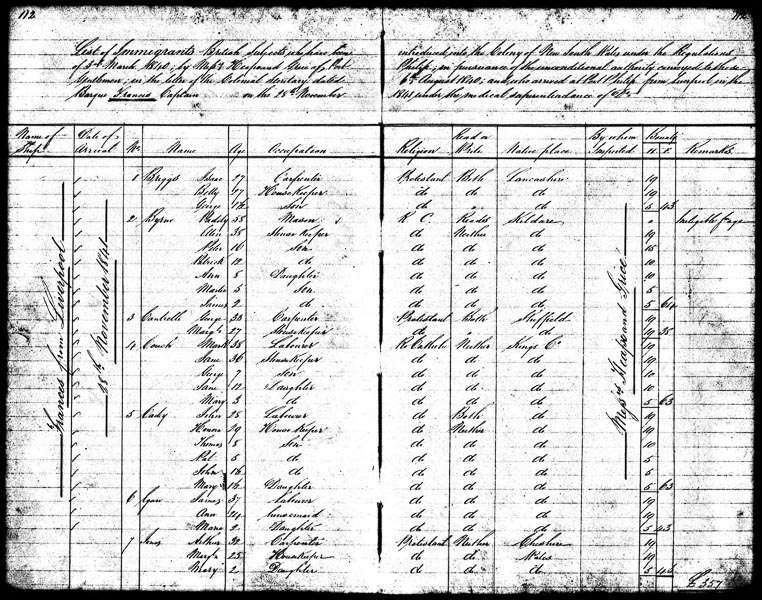 112
List of Immigrants British Subjects who have been introduced into the Colony of New South Wales under the Regulations
of 3rd March 1840, by Messrs Heap and Grice of Port Phillip, in pursuance of the unconditional authority conveyed to those
Gentlemen, in the letter of the Colonial Secretary dated 6th August 1840; and who arrived at Port Phillip from Liverpool, in the
Barque Frances Captain on the 28th November 1841 under the medical superintendance of Dr
Name of Ship Date of Arrival No Name Age Occupation Religion Read or Write Native place By whom Inspected Bounty Remarks
Frances from Liverpool
28th November 1841
Messrs Heap and Grice
1 Briggs Isaac 27 Carpenter Protestant Both Lancashire 19
Betty 27 House Keeper do do do 19
George Son do do 5 43
2 Byrne Paddy 38 Mason R C Reads Kildare
Ellen 38 House Keeper do Neither do 19
Peter 16 Son do do do 15
Patrick 12 do do do do 10
Ann 8 Daughter do do do 10
Martin 5 Son do do do 5
James 2 do do do do 5 64
3 George 33 Carpenter Protestant Both Sheffield 19
Margt 27 House Keeper do do 19 38
4 Couch Mark 38 Labourer R Catholic Neither Kings Co 19
Jane 36 House Keeper do do do 19
George 7 Son do do do 10
Jane 12 Daughter do do do 10
Mary 3 do do do do 5 63
5 John 28 Labourer do Both do 19
Honor 29 House Keeper do Neither do 19
Thomas 8 Son do do do 10
Pat 5 do do do do 5
John do do do do 5
Mary Daughter do do do 5 63
6 James 37 Labourer do do do 19
Ann 24 Housemaid do do do 19
Maria 2 Daughter do do do 5 43
7 Jones Arthur 32 Carpenter Protestant Neither Cheshire 19
Mary 25 House Keeper do do Wales 19
Mary 2 Daughter do do do 5 43
£ 357